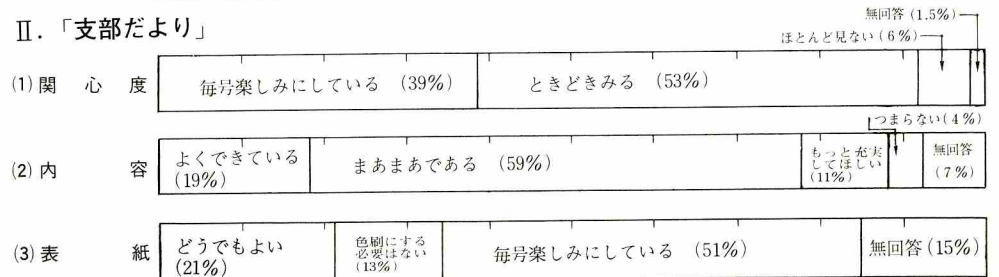 Ⅱ.「支部だより」
無回答(1.5%)
ほとんど見ない(6%)
(1)関心度
毎号楽しみにしている (39%)
ときどきみる (53%)
つまらない(4%)
(2)内容
よくできている
(19%)
まあまあである (59%)
もっと充実
してほしい
(11%)
無回答
(7%)
(3)表紙
どうでもよい
(21%)
色刷にする
必要はない
(13%)
毎号楽しみにしている (51%)
無回答(15%)